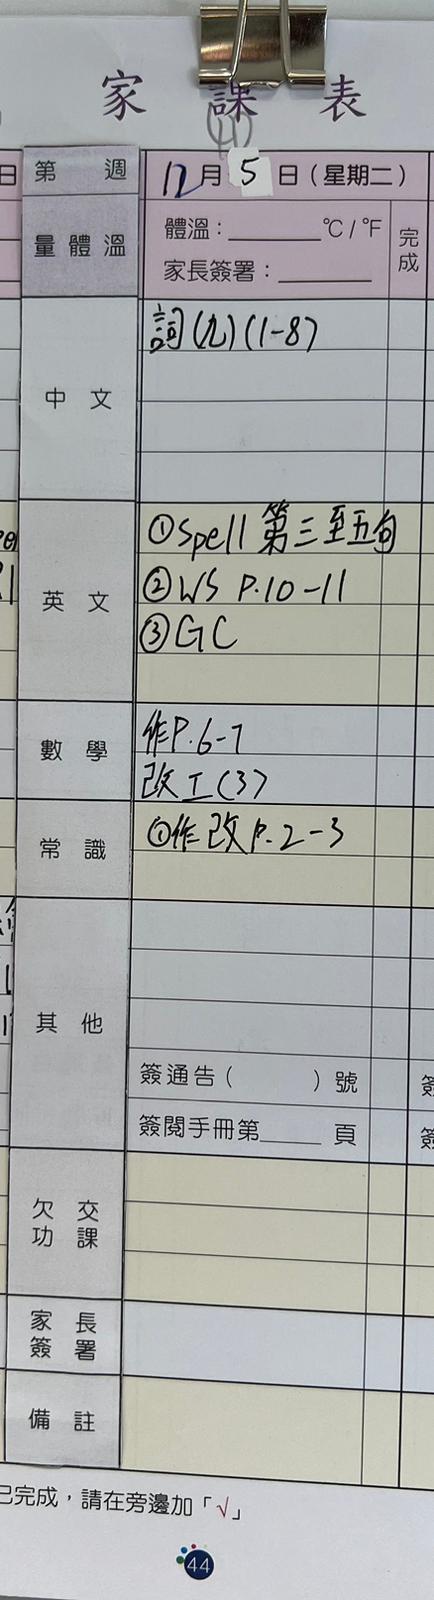 家課表
(4)
日 第 週 12月5日(星期二)
量體溫 體溫：______℃/℉ 完成
家長簽署：______
中文 詞(九)(1-8)
英文 ①Spell 第三至五句
②WS P.10-11
③GC
數學 作P.6-7
改工(3)
常識 ①作改P.2-3
其他
簽通告( )號 簽
簽閱手冊第____頁 簽
欠交功課
家長簽署
備註
已完成，請在旁邊加「√」
44